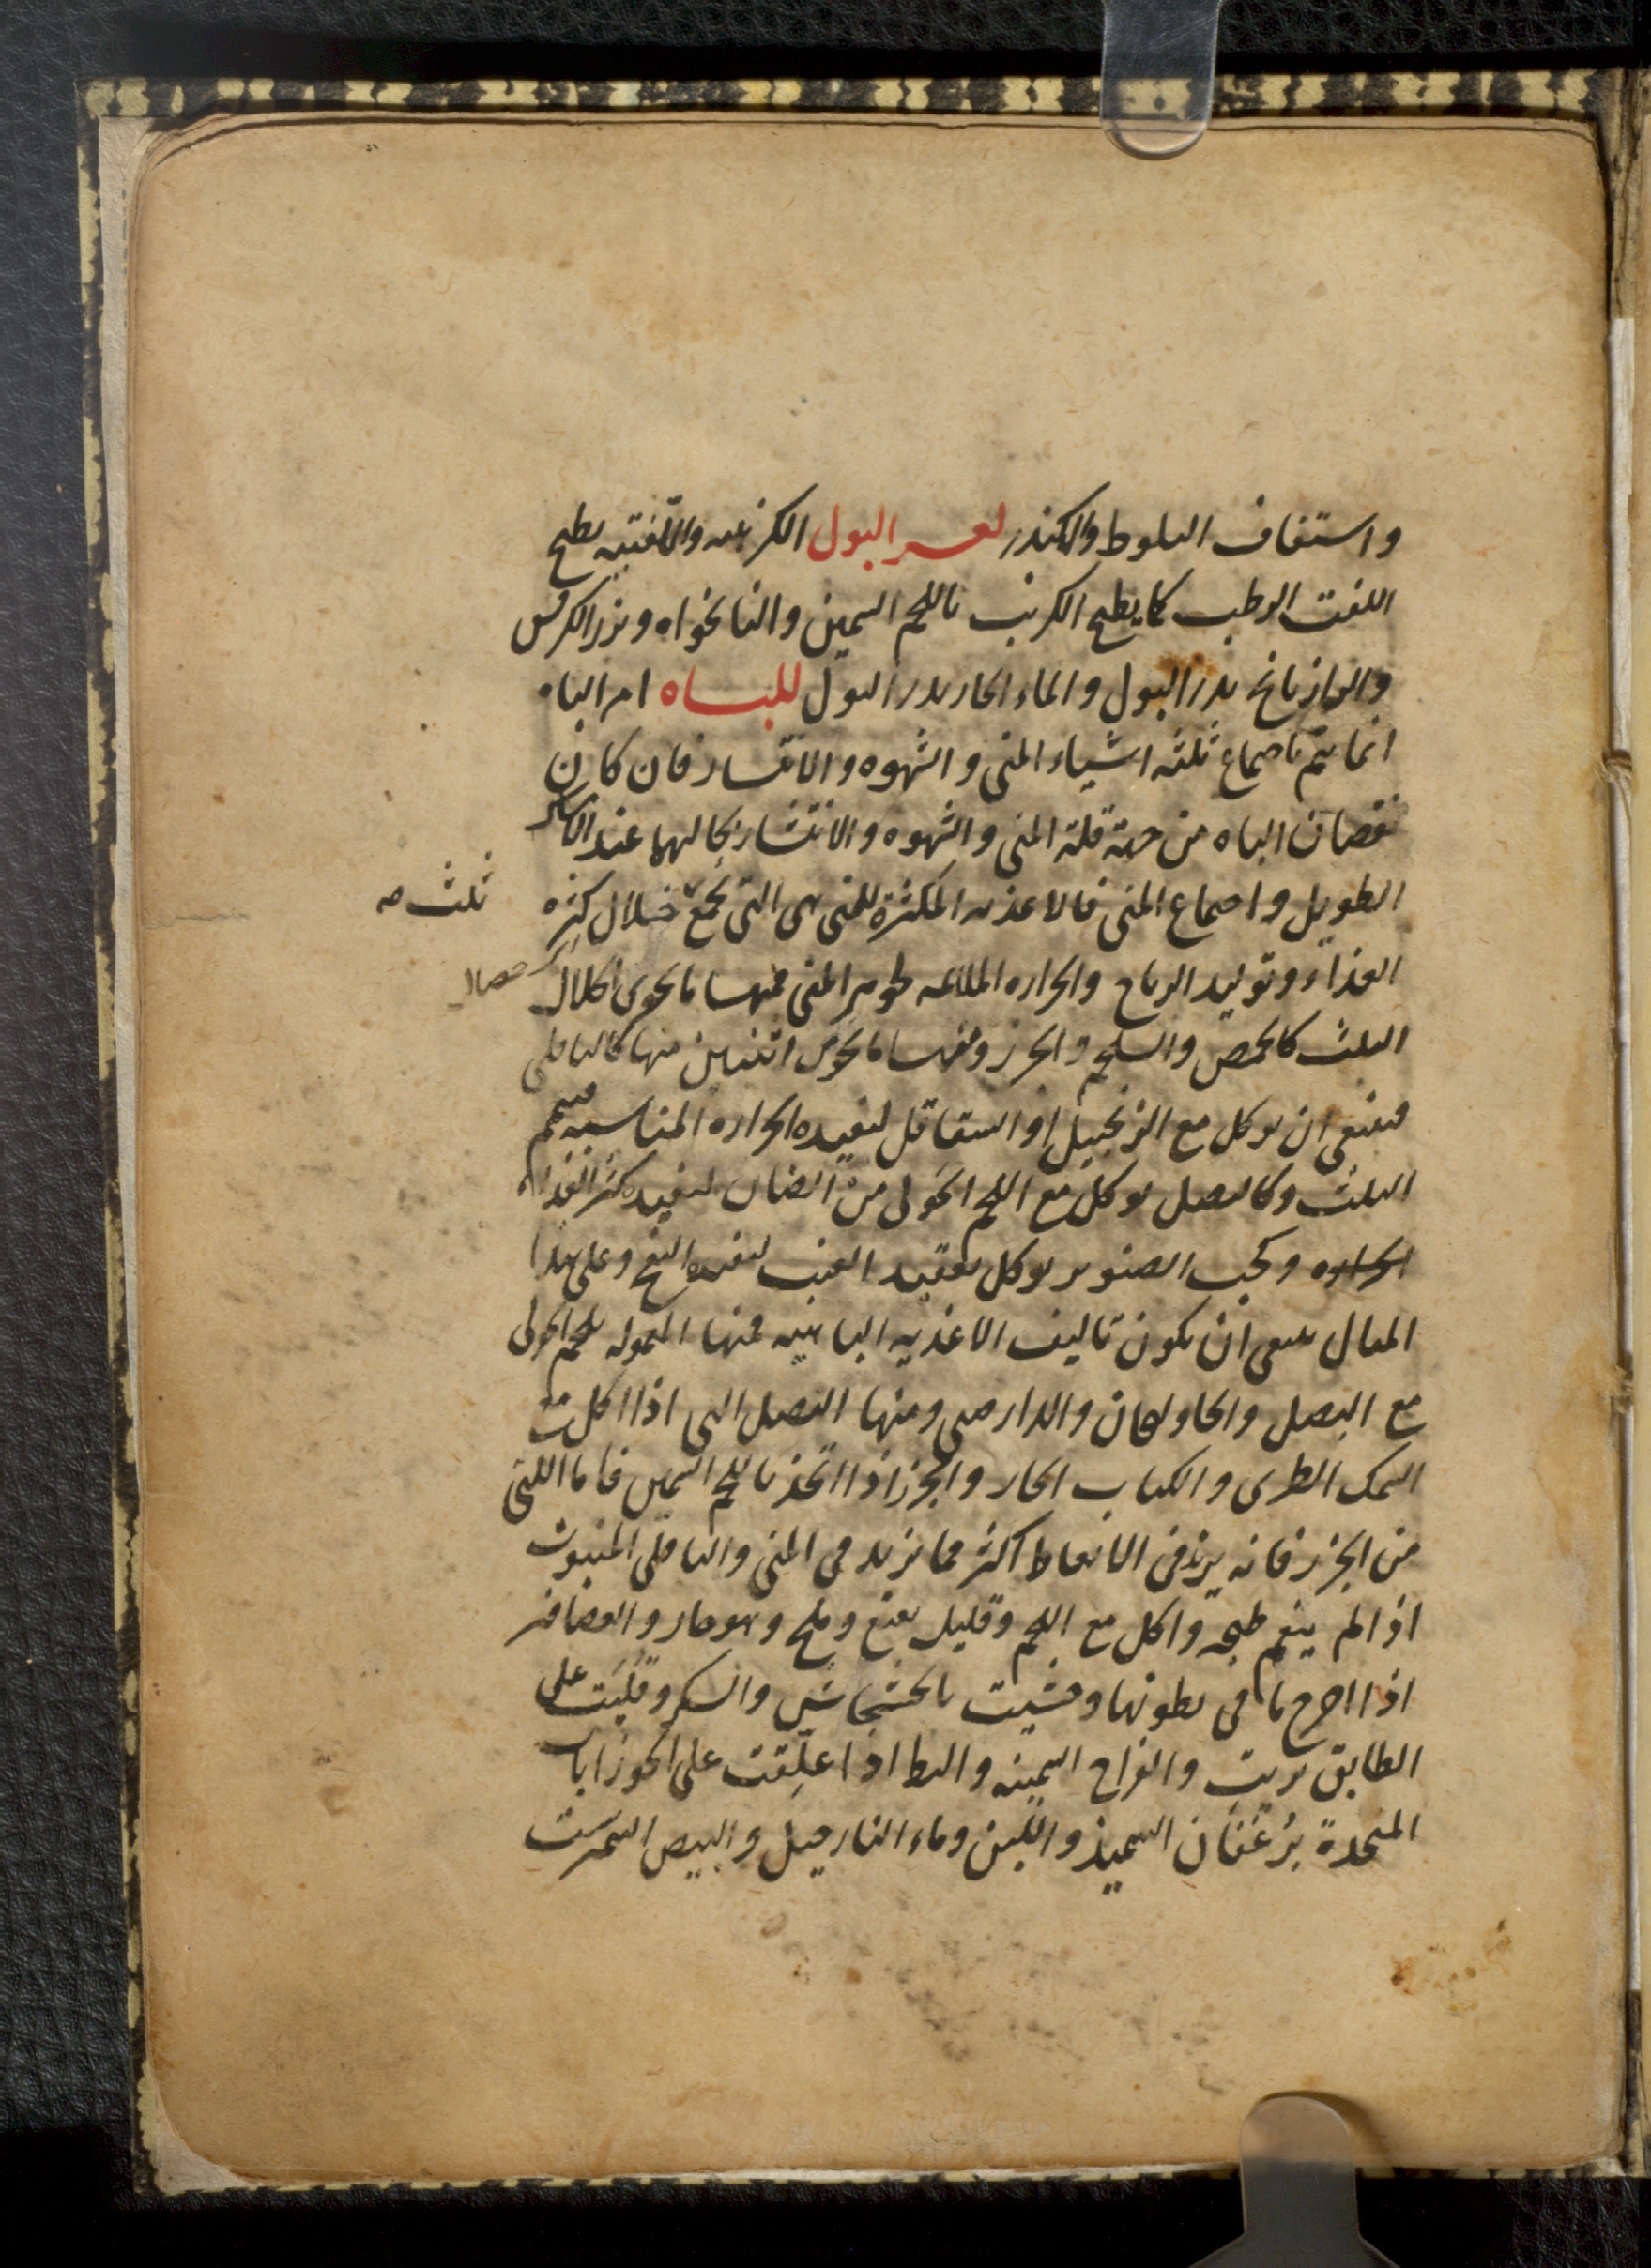 واستفاف البلوط والكندر لعسر البول الكرنبيه واللفتيه يطبخ
اللفت الرطب كما يطبخ الكرنب باللحم السمين والنانخواه وبزر الكرفس
والرازيانج يدر البول والماء الحار يدر البول للباه امر الباه
انما يتم باجتماع ثلثه اشياء المنى والشهوه والانتشار فان كان
نقصان الباه من جهة قلة المنى والشهوه والانتشار بحالهما عند
الطويل واجتماع المنى فالاغذيه المكثرة للمنى هى التى تجمع خلال كثره
ثلث صح
الغذاء وتوليد الرياح والحراره الملائمه لجوهر المنى فمنها ما يحوى الخلال
خصال
الثلث كالحمص والسلجم والجزر ومنها ما يحوى اثنتين منها كالباقلى
فينبغى ان يوكل مع الزنجبيل او الشقاقل ليفيده الحراره المناسبه فيتم
الثلث وكالبصل يوكل مع اللحم الحولى من الضان ليفيده كثرة الغذاء
الحراره وكحب الصنوبر يوكل بعقيد العنب ليفيده النفخ وعلى هذا
المثال ينبغى ان يكون تاليف الاغذيه الباهيه فمنها المعموله بلحم الحولى
مع البصل والخاولنجان والدارصينى ومنها البصل التى اذا اكلت
السمك الطرى والكباب الحار والجزر اذا اتخذ باللحم السمين فاما النى
من الجزر فانه يزيد فى الانعاظ اكثر مما يزيد فى المنى والباقلى المنبوت
اذا لم ينعم طبخه واكل مع اللحم وقليل نعنع وملح وهو حار والعصافير
اذا اخرج ما فى بطونها وحشيت بالخشخاش والسكر وقليت على
الطابق بزيت والفراخ السمينه والبط اذا علقت على الجوزابات
المتخذة برغفان السميذ واللبن وماء النارجيل والبيض النيمرشت